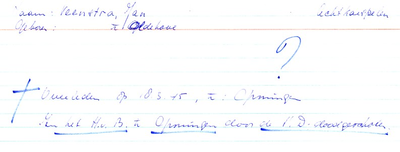 Naam: Veenstra, Jan Echtkaarspelen
Geboren: te Oldehove
?
† Overleden op 18.3.45, te: Groningen
In het H.v.B. te Groningen door de S.D. doodgeschoten.